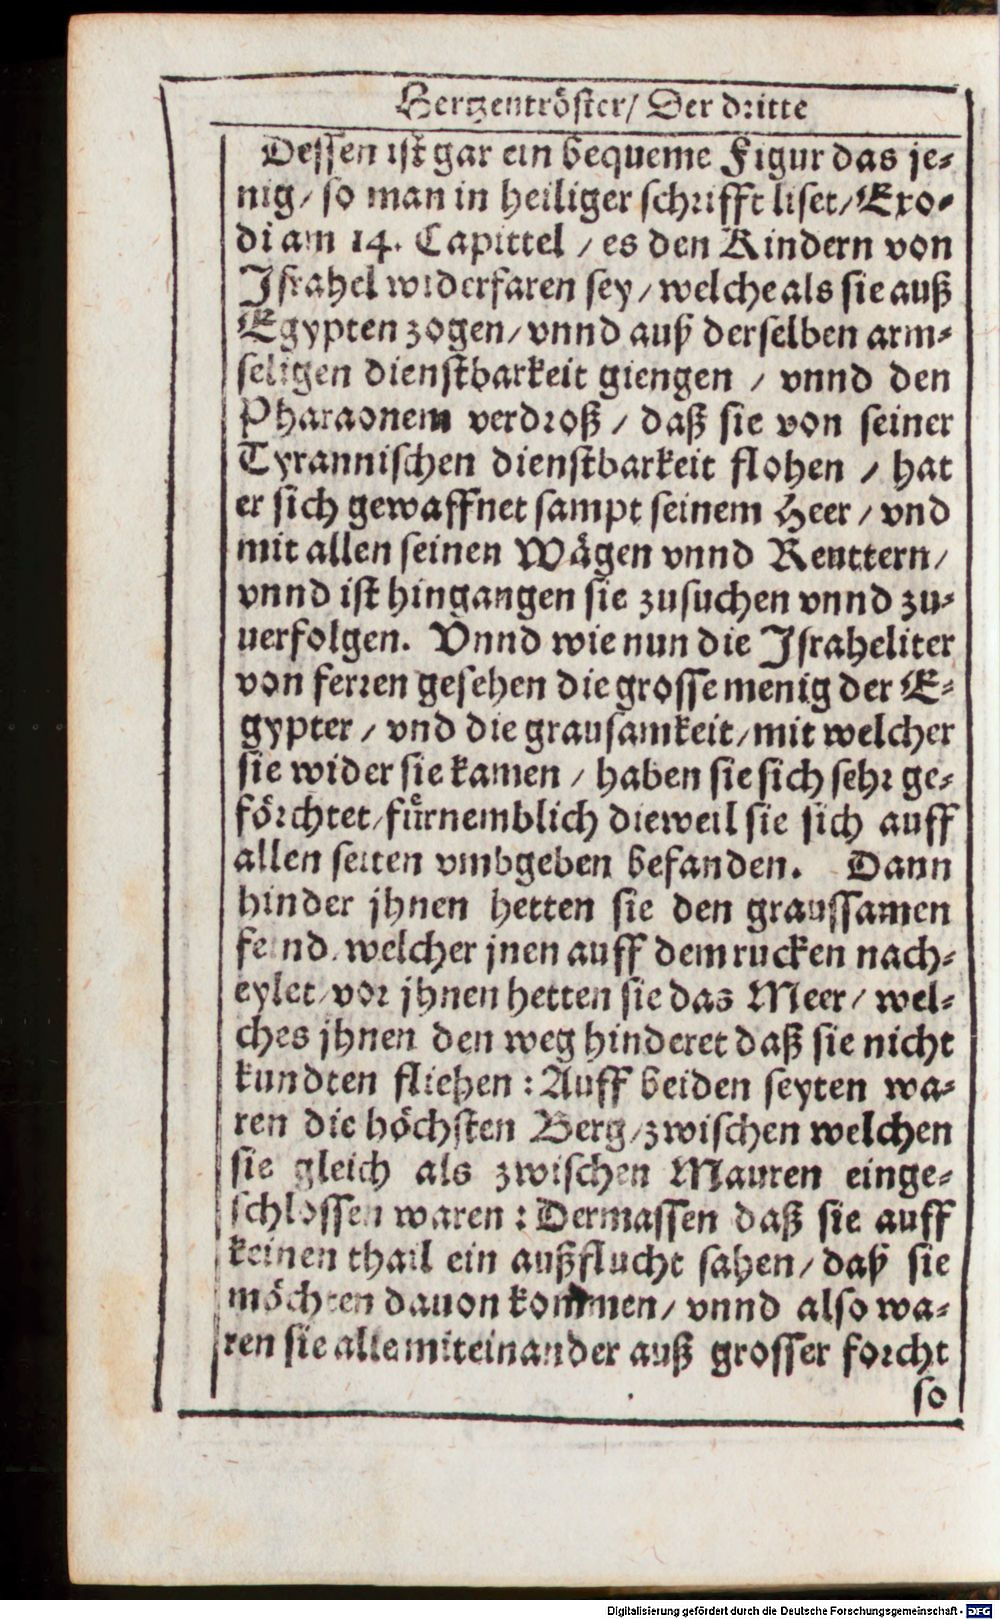 Hertzentröster/ Der dritte
Dessen ist gar ein bequeme Figur das je-
nig/ so man in heiliger schrifft liset/ Exo-
di am 14. Capittel / es den Kindern von
Israhel widerfaren sey/ welche als sie auß
Egypten zogen/ vnnd auß derselben arm-
seligen dienstbarkeit giengen / vnnd den
Pharaonem verdroß / daß sie von seiner
Tyrannischen dienstbarkeit flohen / hat
er sich gewaffnet sampt seinem Heer / vnd
mit allen seinen Wägen vnnd Reuttern/
vnnd ist hingangen sie zusuchen vnnd zu-
uerfolgen. Vnnd wie nun die Israheliter
von ferren gesehen die grosse menig der E-
gypter / vnd die grausamkeit/ mit welcher
sie wider sie kamen / haben sie sich sehr ge-
förchtet/ fürnemblich dieweil sie sich auff
allen seiten vmbgeben befanden. Dann
hinder jhnen hetten sie den graussamen
feind/ welcher jnen auff dem rucken nach-
eylet/ vor jhnen hetten sie das Meer/ wel-
ches jhnen den weg hinderet daß sie nicht
kundten fliehen : Auff beiden seyten wa-
ren die höchsten Berg/ zwischen welchen
sie gleich als zwischen Mauren einge-
schlossen waren : Dermassen daß sie auff
keinen thail ein außflucht sahen/ daß sie
möchten dauon kommen/ vnnd also wa-
ren sie alle miteinander auß grosser forcht
so
Digitalisierung gefördert durch die Deutsche Forschungsgemeinschaft - DFG